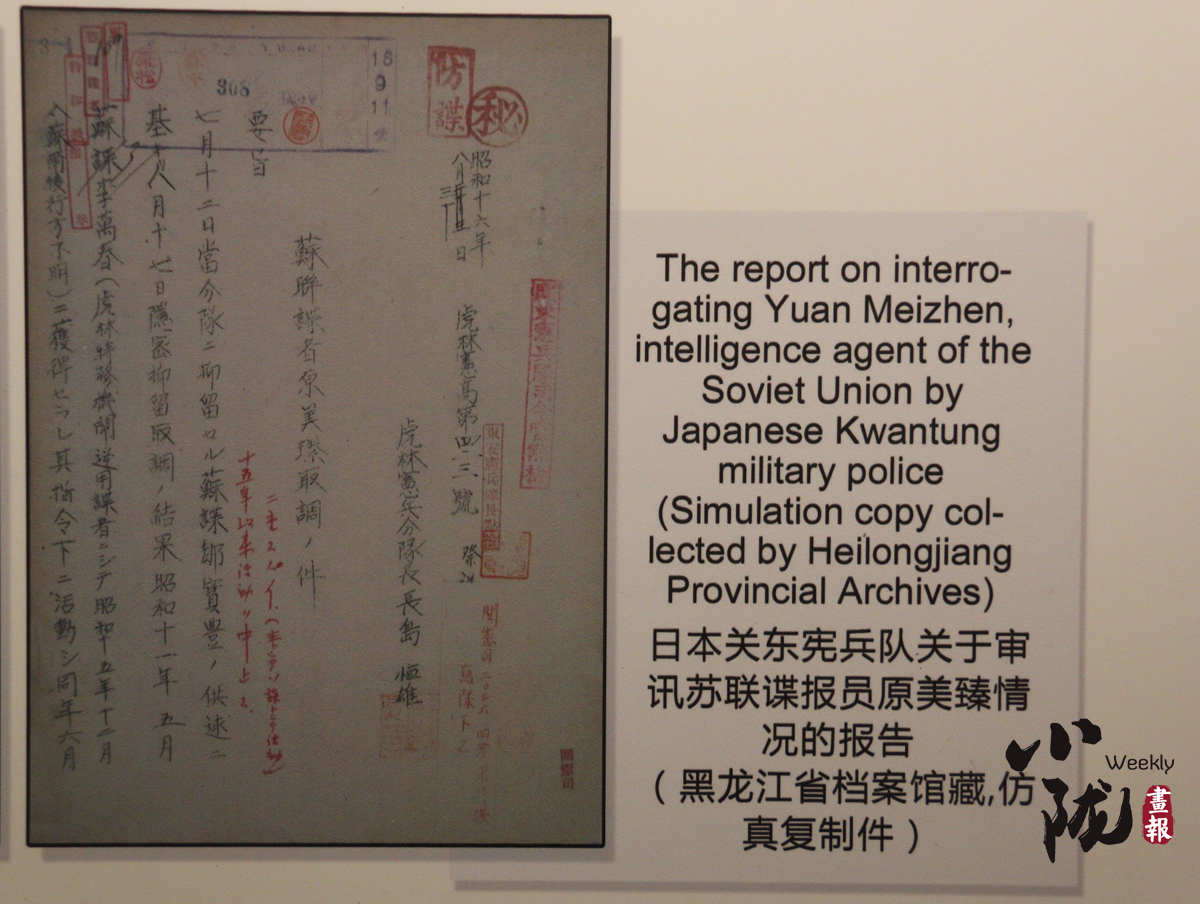 防諜
秘
16
9
11
308
昭和十六年
八月
日
虎林憲高第四三三號
虎林憲兵分隊長長島 恒雄
蘇聯諜者原美臻取調ノ件
要旨
七月十二日當分隊ニ抑留セル蘇諜鄒寶豊ノ供述ニ
基キ八月十七日隱密抑留取調ノ結果昭和十一年五月
蘇諜李萬春(虎林特務機關逆用諜者ニシテ昭和十五年十二月
入蘇爾後行方不明)ニ獲得セラレ其指令下ニ活動シ同年六月
十五年以来活動ヲ中止シ
關憲司
The report on interro-
gating Yuan Meizhen,
intelligence agent of the
Soviet Union by
Japanese Kwantung
military police
(Simulation copy col-
lected by Heilongjiang
Provincial Archives)
日本关东宪兵队关于审
讯苏联谍报员原美臻情
况的报告
(黑龙江省档案馆藏,仿
真复制件)
小陇
Weekly
畫報